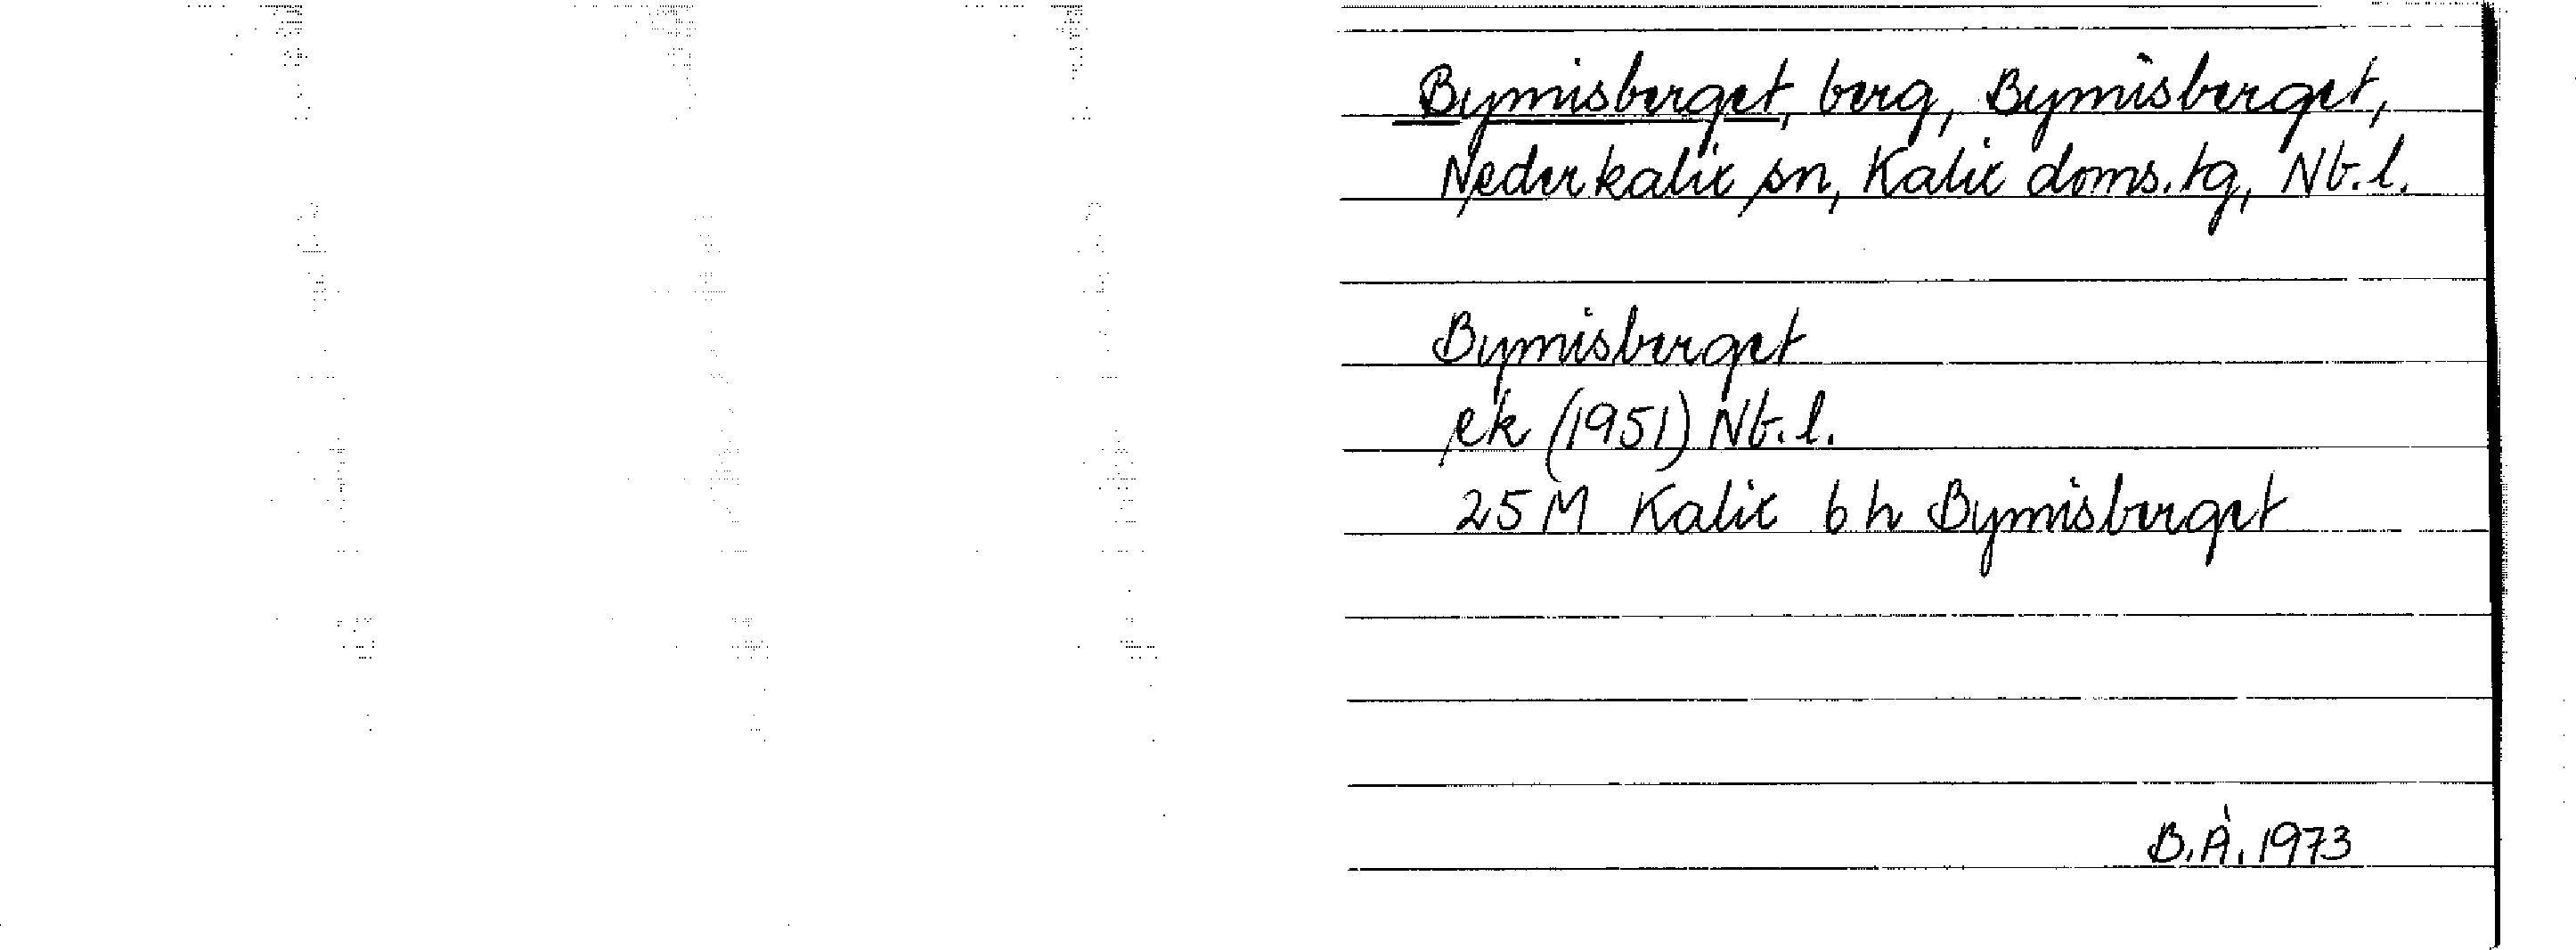 Bymisberget, berg, Bymisberget,
Nederkalix sn, Kalix doms.tg, Nb.l.
Bymisberget
ek (1951) Nb.l.
25 M Kalix 6 h Bymisberget
B.Å. 1973